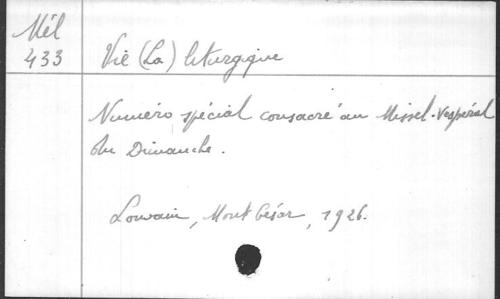 Mél
433
Vie (La) liturgique
Numéro spécial consacré au Missel-Vespéral
du Dimanche.
Louvain, Mont César, 1926.